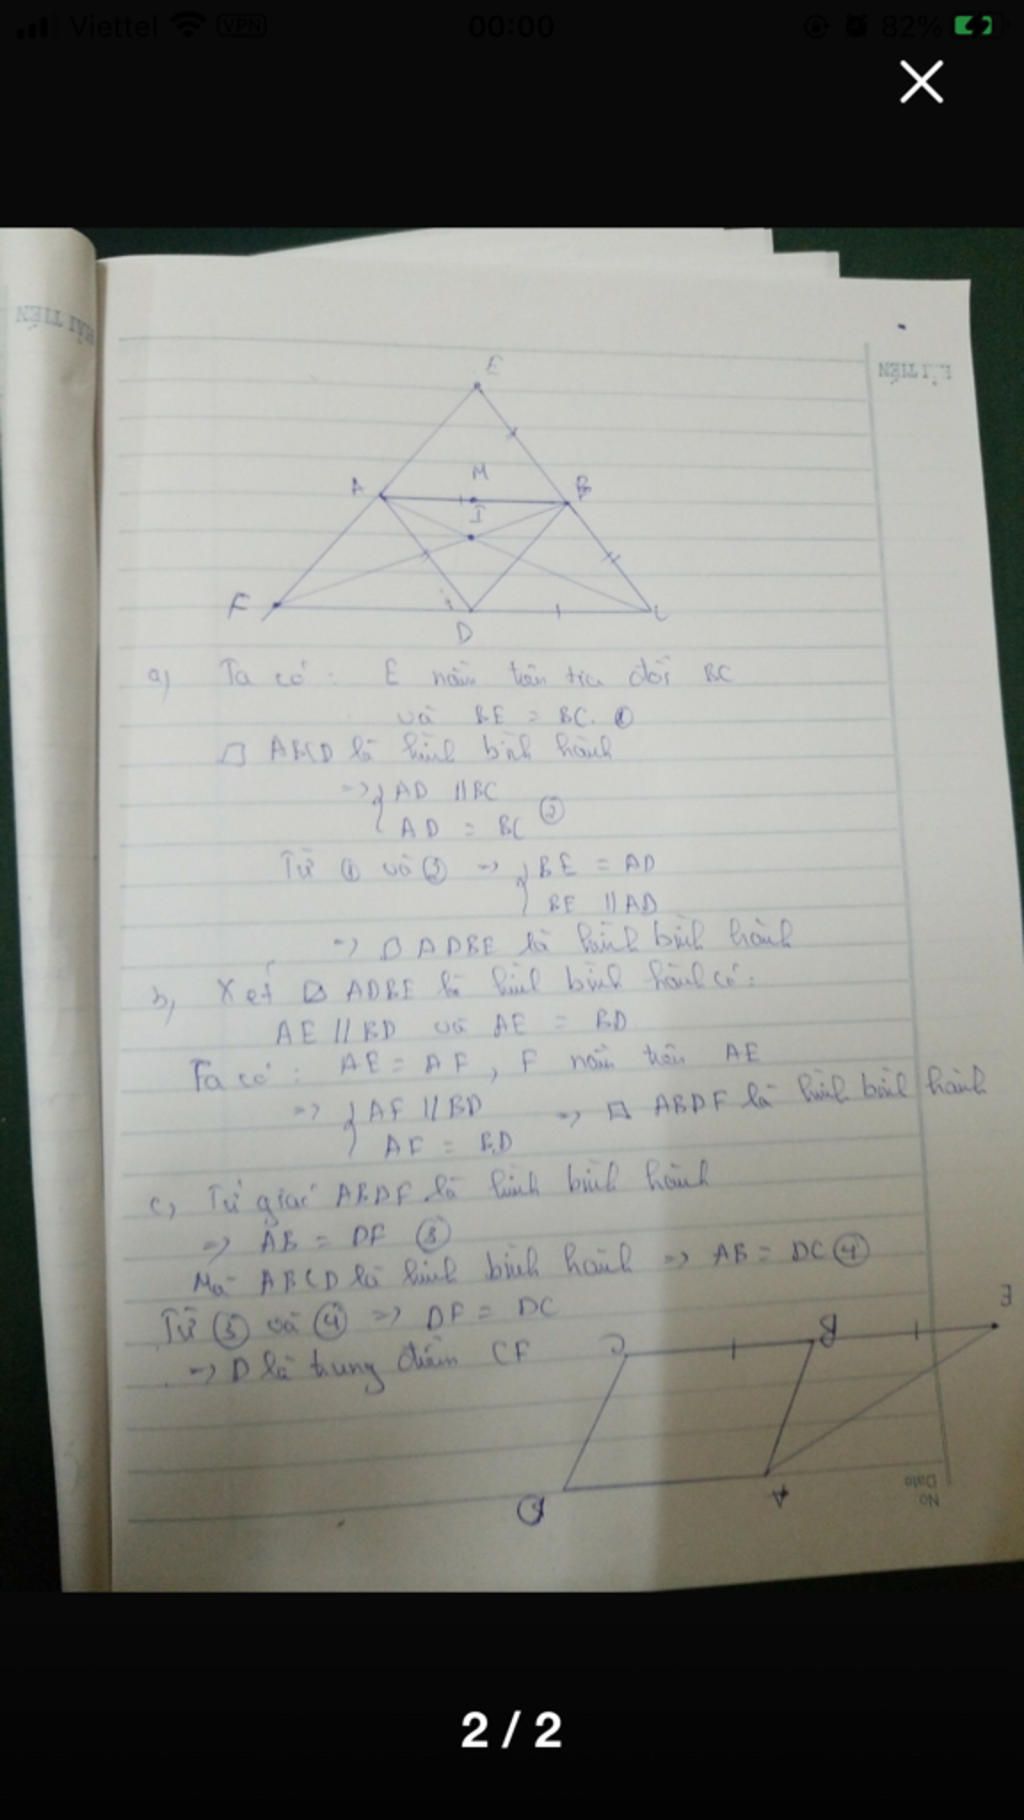 Viettel VPN 00:00 82%
HẢI TIẾN
HẢI TIẾN
E
A M B
I
F D C
a) Ta có: E nằm trên tia đối BC
và BE = BC. ①
□ ABCD là hình bình hành
=> { AD // BC
AD = BC ②
Từ ① và ② => { BE = AD
BE // AD
=> □ ADBE là hình bình hành
b) Xét □ ADBE là hình bình hành có:
AE // BD và AE = BD
Ta có: AE = AF, F nằm trên AE
=> { AF // BD => □ ABDF là hình bình hành
AF = BD
c) Tứ giác ABDF là hình bình hành
=> AB = DF ③
Mà ABCD là hình bình hành => AB = DC ④
Từ ③ và ④ => DF = DC
=> D là trung điểm CF
C B E
D A
No
Date
2 / 2